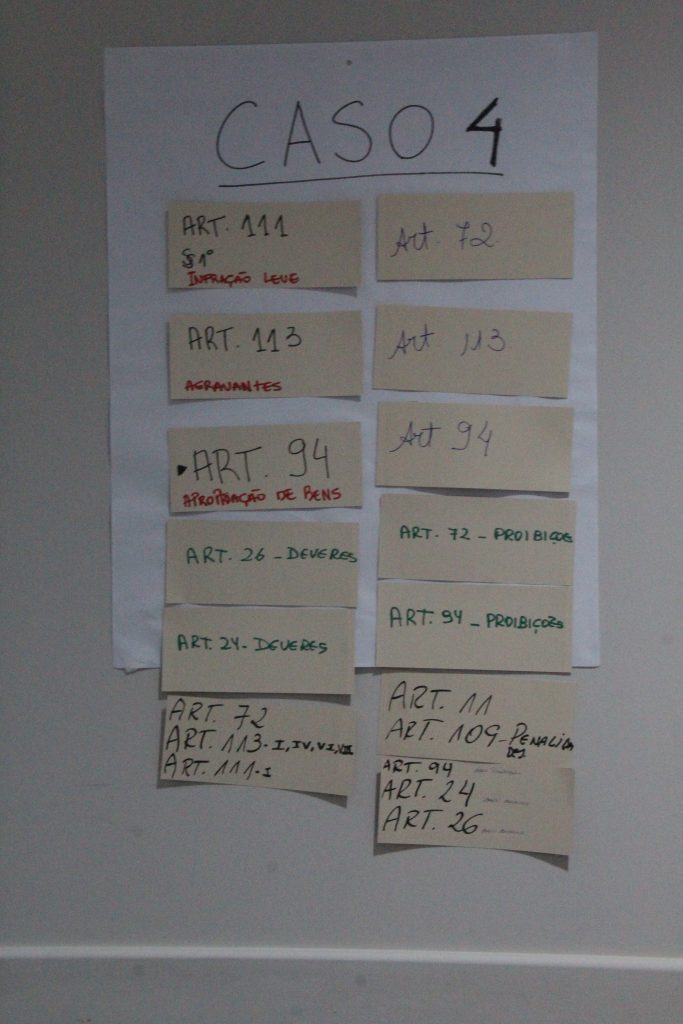 CASO 4
ART. 111
§1º
INFRAÇÃO LEVE
ART. 113
AGRAVANTES
ART. 94
APROPRIAÇÃO DE BENS
ART. 26 - DEVERES
ART. 24 - DEVERES
ART. 72
ART. 113 - I, IV, VI, VIII
ART. 111 - I
Art. 72
Art 113
Art 94
ART. 72 - PROIBIÇOES
ART. 94 - PROIBIÇÕES
ART. 11
ART. 109 - PENALIDA
DES
ART. 94
ART. 24
ART. 26